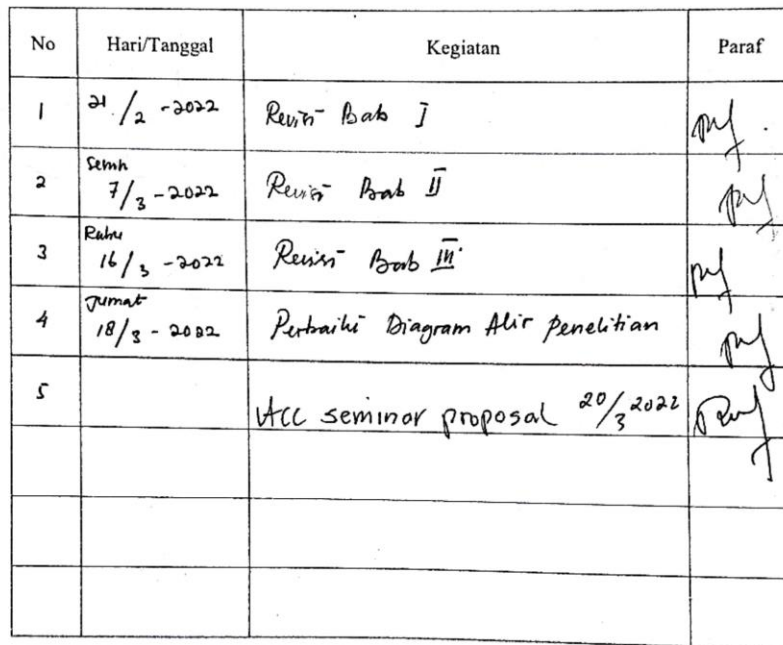 No Hari/Tanggal Kegiatan Paraf
1 21/2 - 2022 Revisi Bab I
Senin
2 7/3 - 2022 Revisi Bab II
Rabu
3 16/3 - 2022 Revisi Bab III
Jumat
4 18/3 - 2022 Perbaiki Diagram Alir penelitian
5
ACC seminar proposal 20/3 2022